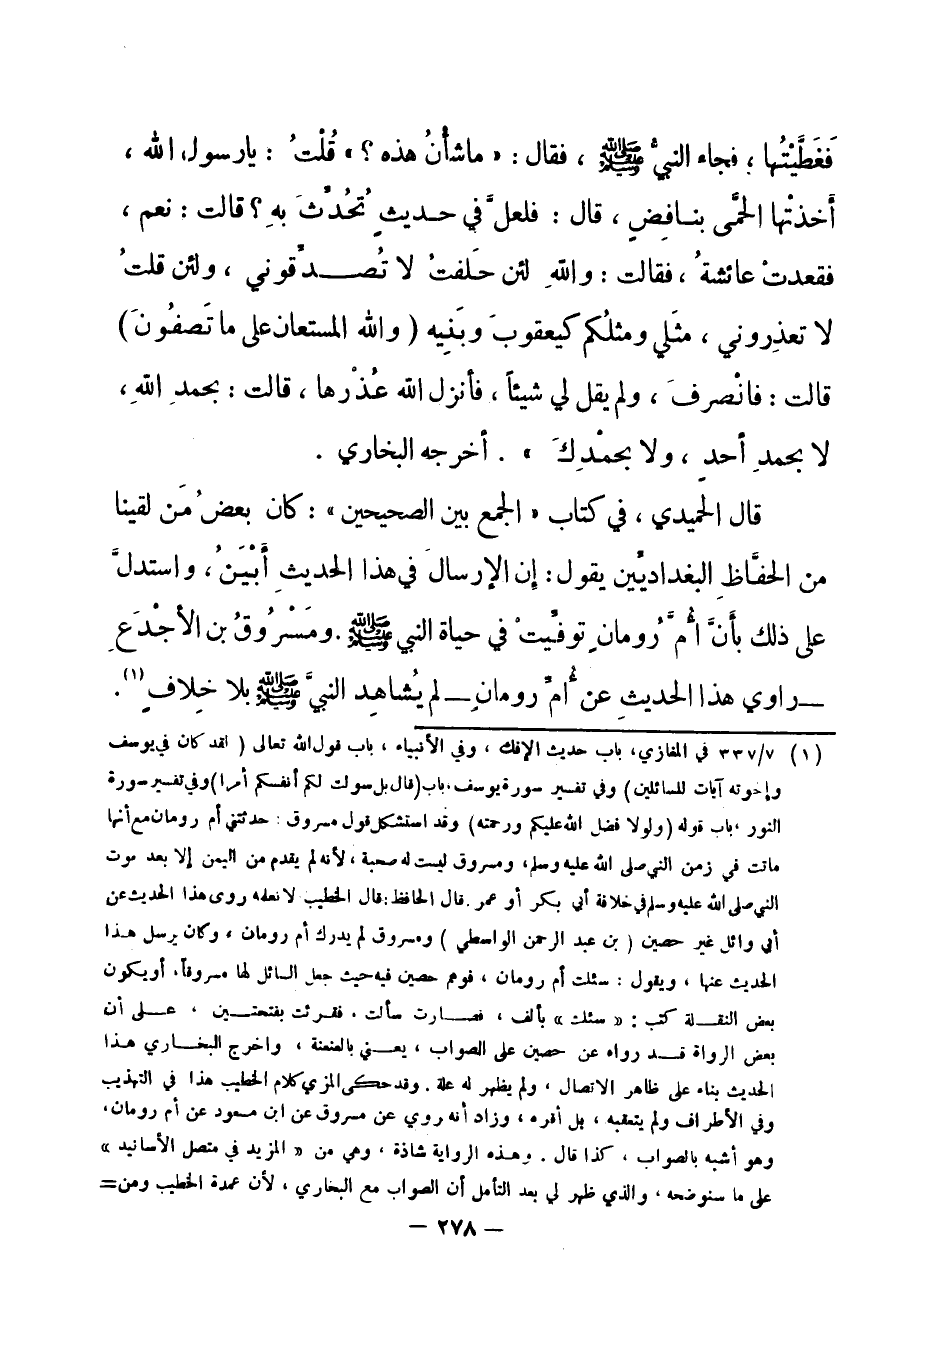 فَغَطَّيْتُها ؛ فجاء النبيُّ ﷺ ، فقال : « ماشأنُ هذه ؟ » قُلْتُ : يارسول الله ،
أخذتْها الحمَّى بنافِضٍ ، قال : فلعلَّ في حديثٍ تُحُدِّثَ بهِ ؟ قالت : نعم ،
فقعدتْ عائشةُ ، فقالت : واللهِ لئن حلَفتُ لا تُصدِّقوني ، ولئن قلتُ
لا تعذِروني ، مثَلي ومثلُكم كيعقوبَ وبَنيه ( والله المستعان على ما تَصفُونَ )
قالت : فانْصرفَ ، ولم يقل لي شيئاً ، فأنزل الله عُذْرها ، قالت : بحمدِ اللهِ ،
لا بحمدِ أحدٍ ، ولا بحمْدِكَ » . أخرجه البخاري .
قال الحميدي ، في كتاب « الجمع بين الصحيحين » : كان بعضُ مَن لقينا
من الحفَّاظِ البغداديِّين يقول : إن الإرسالَ في هذا الحديثِ أَبْيَنُ ، واستدلَّ
على ذلك بأَنَّ أُمَّ رُومانٍ توفِّيتْ في حياة النبي ﷺ . ومَسْرُوقُ بن الأجْدَعِ
ــ راوي هذا الحديثِ عن أُمِّ رومانٍ ــ لم يُشاهِد النبيَّ ﷺ بلا خِلافٍ (١) .
(١) ٣٣٧/٧ في المغازي، باب حديث الإفك ، وفي الأنبياء ، باب قول الله تعالى ( لقد كان في يوسف
وإخوته آيات للسائلين ) وفي تفسير سورة يوسف ، باب ( قال بل سولت لكم أنفسكم أمرا ) وفي تفسير سورة
النور ، باب قوله ( ولولا فضل الله عليكم ورحمته ) وقد استشكل قول مسروق : حدثتني أم رومان مع أنها
ماتت في زمن النبي صلى الله عليه وسلم، ومسروق ليست له صحبة ، لأنه لم يقدم من اليمن إلا بعد موت
النبي صلى الله عليه وسلم في خلافة أبي بكر أو عمر . قال الحافظ : قال الخطيب لا نعله روى هذا الحديث عن
أبي وائل غير حصين ( بن عبد الرحمن الواسطي ) ومسروق لم يدرك أم رومان ، وكان يرسل هذا
الحديث عنها ، ويقول : سئلت أم رومان ، فوهم حصين فيه حيث جعل السائل لها مسروقاً، أو يكون
بعض النقلة كتب : « سئلت » بألف ، فصارت سألت ، فقرئت بفتحتين ، على أن
بعض الرواة قد رواه عن حصين على الصواب ، يعني بالعنعنة ، واخرج البخاري هذا
الحديث بناء على ظاهر الاتصال ، ولم يظهر له علة . وقد حكى المزي كلام الخطيب هذا في التهذيب
وفي الأطراف ولم يتعقبه ، بل أقره ، وزاد أنه روي عن مسروق عن ابن مسعود عن أم رومان ،
وهو أشبه بالصواب ، كذا قال . وهذه الرواية شاذة ، وهي من « المزيد في متصل الأسانيد »
على ما سنوضحه ، والذي ظهر لي بعد التأمل أن الصواب مع البخاري ، لأن عمدة الخطيب ومن=
– ٢٧٨ –